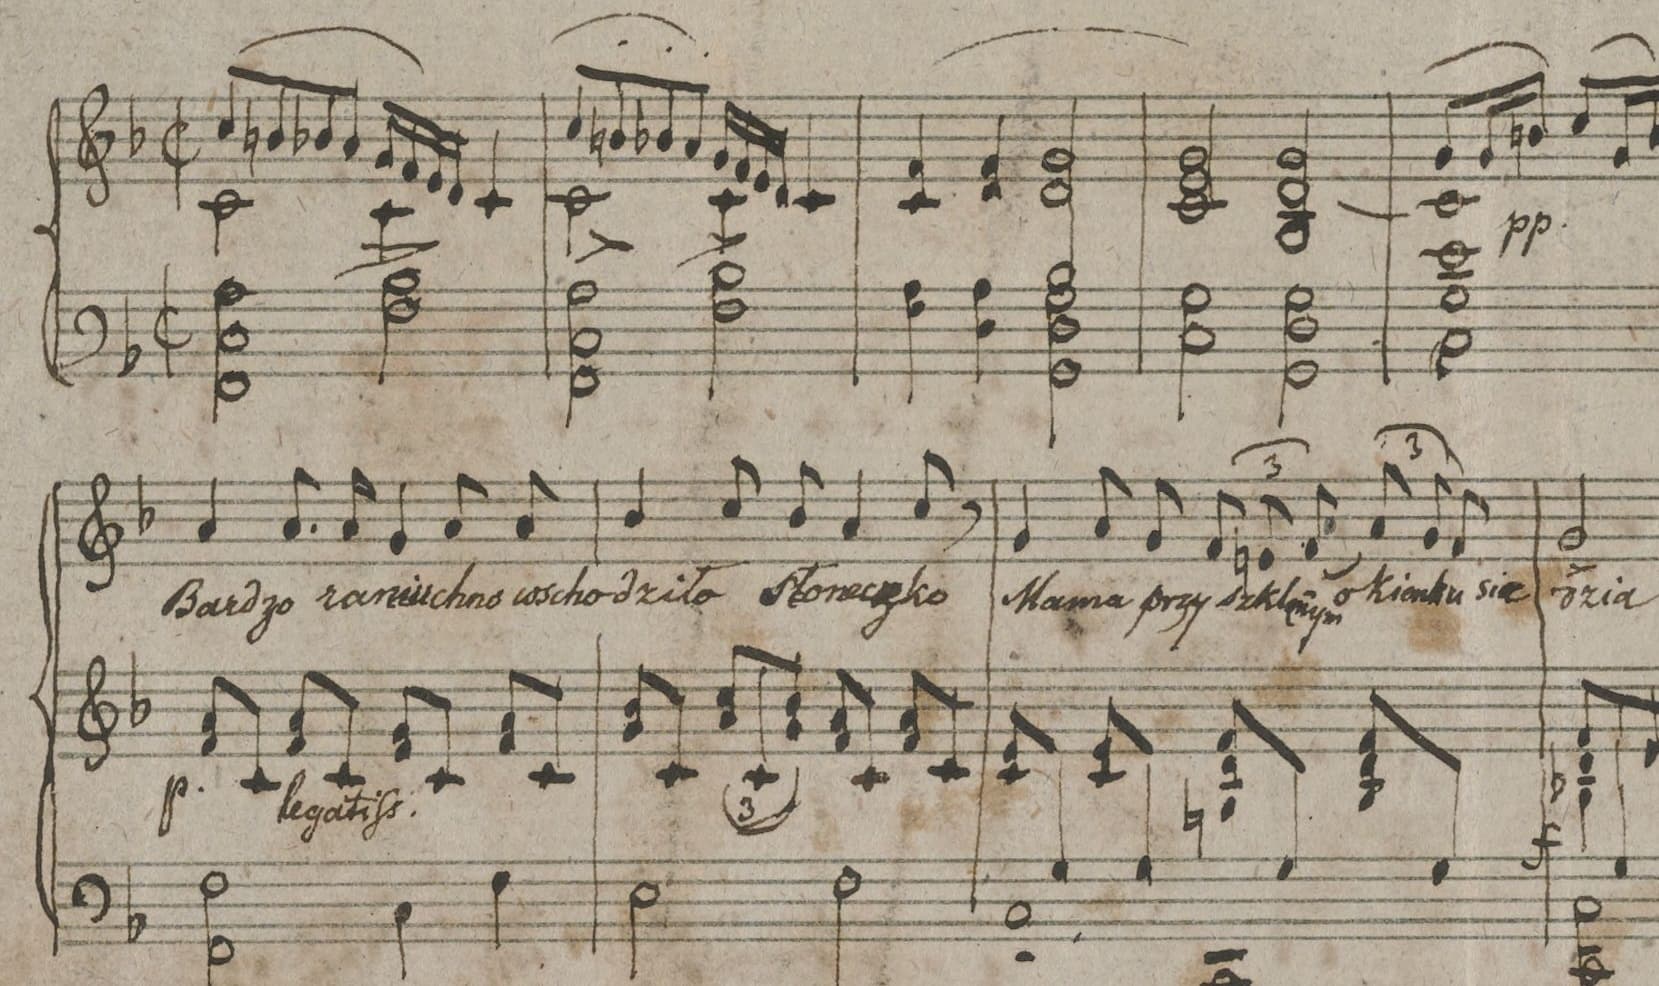 pp.
3 3
Bardzo raniuchno wschodziło Słoneczko Mama przy szklannym okienku sie dzia
p. legatiss.
3
f